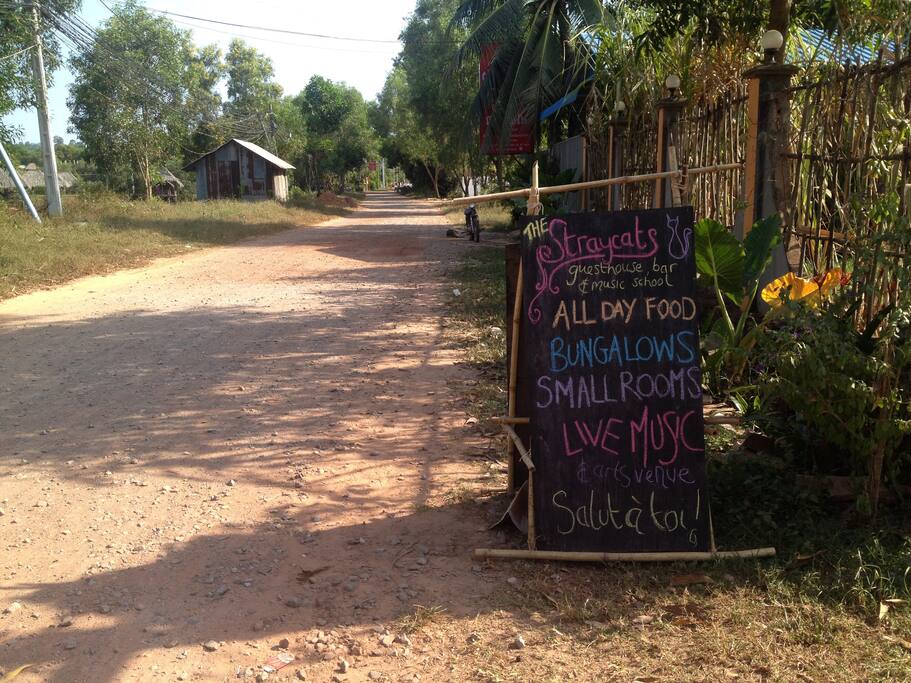 THE
Straycats
guesthouse, bar
& music school
ALL DAY FOOD
BUNGALOWS
SMALL ROOMS
LIVE MUSIC
& arts venue
Salut à toi!